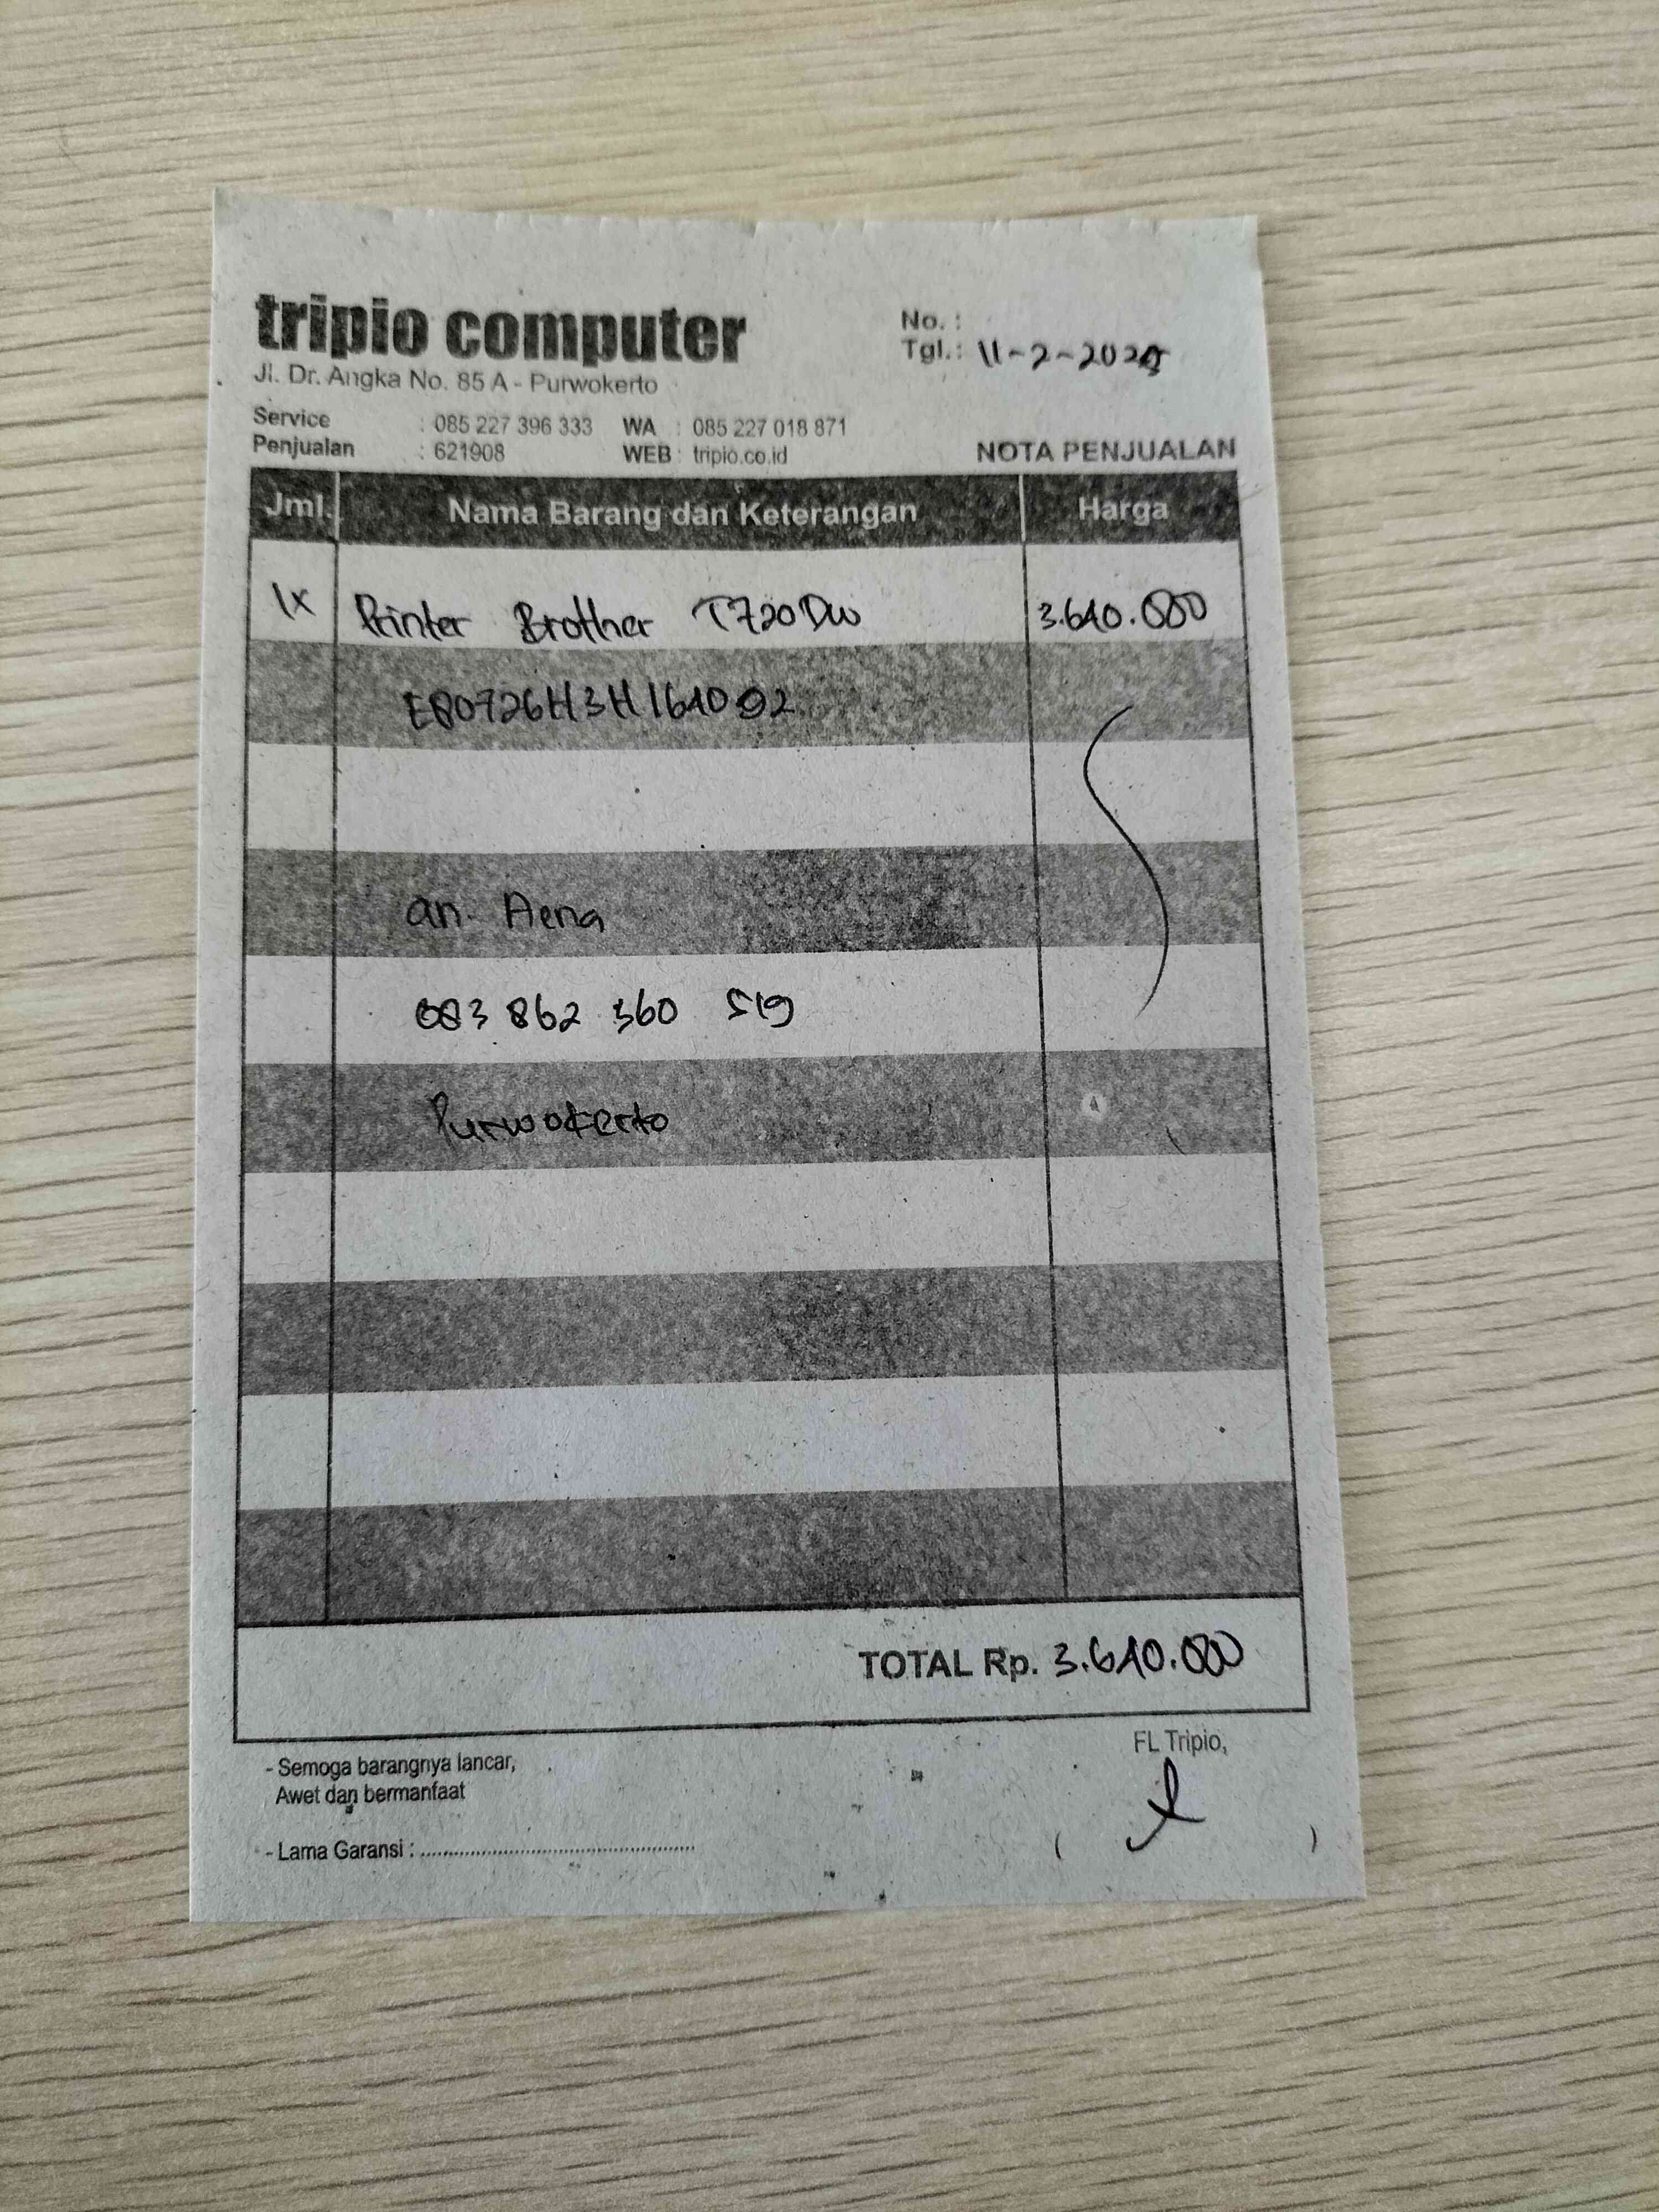 tripio computer
Jl. Dr. Angka No. 85 A - Purwokerto
No. :
Tgl.: 11-2-2025
Service : 085 227 396 333 WA : 085 227 018 871
Penjualan : 621908 WEB : tripio.co.id
NOTA PENJUALAN
Jml. Nama Barang dan Keterangan Harga
1x Printer Brother T720DW 3.640.000
E80726H3H164092
an. Aena
083 862 360 519
Purwokerto
TOTAL Rp. 3.640.000
- Semoga barangnya lancar,
Awet dan bermanfaat
- Lama Garansi :
FL Tripio,
( )